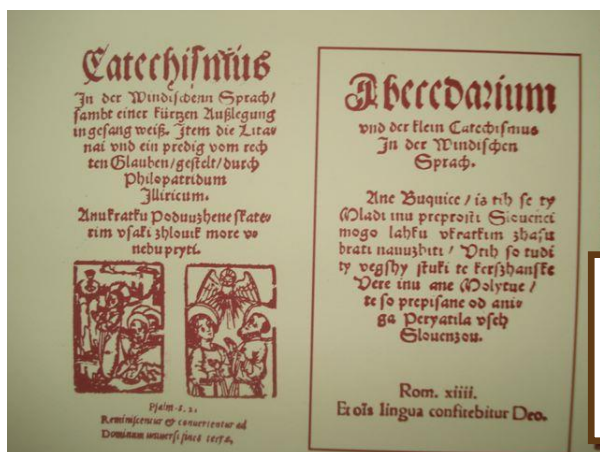 Catechismus
In der Windischenn Sprach/
sambt einer kürtzen Außlegung
in gesang weiß. Item die Litav
nai vnd ein predig vom rech
ten Glauben/gestelt/durch
Philopatridum
Illiricum.
Anu kratku Poduuzhene skate-
rim vsaki zhlouik more vo
nebu pryti.
Psalm.
Reminiscentur & conuertentur ad
Dominum uniuersi fines terræ.
Abecedarium
vnd der klein Catechismus
In der Windischen
Sprach.
Ane Buquice / is tih se ty
Mladi inu preprosti Slouenci
mogo lahku vkratkim zhasu
brati nauuzhiti / Vtih so tudi
ty vegshy stuki te kerszhanske
Vere inu ane Molytue /
te so prepisane od anis
ga Peryatila vseh
Slouenzou.
Rom. xiiii.
Et oīs lingua confitebitur Deo.